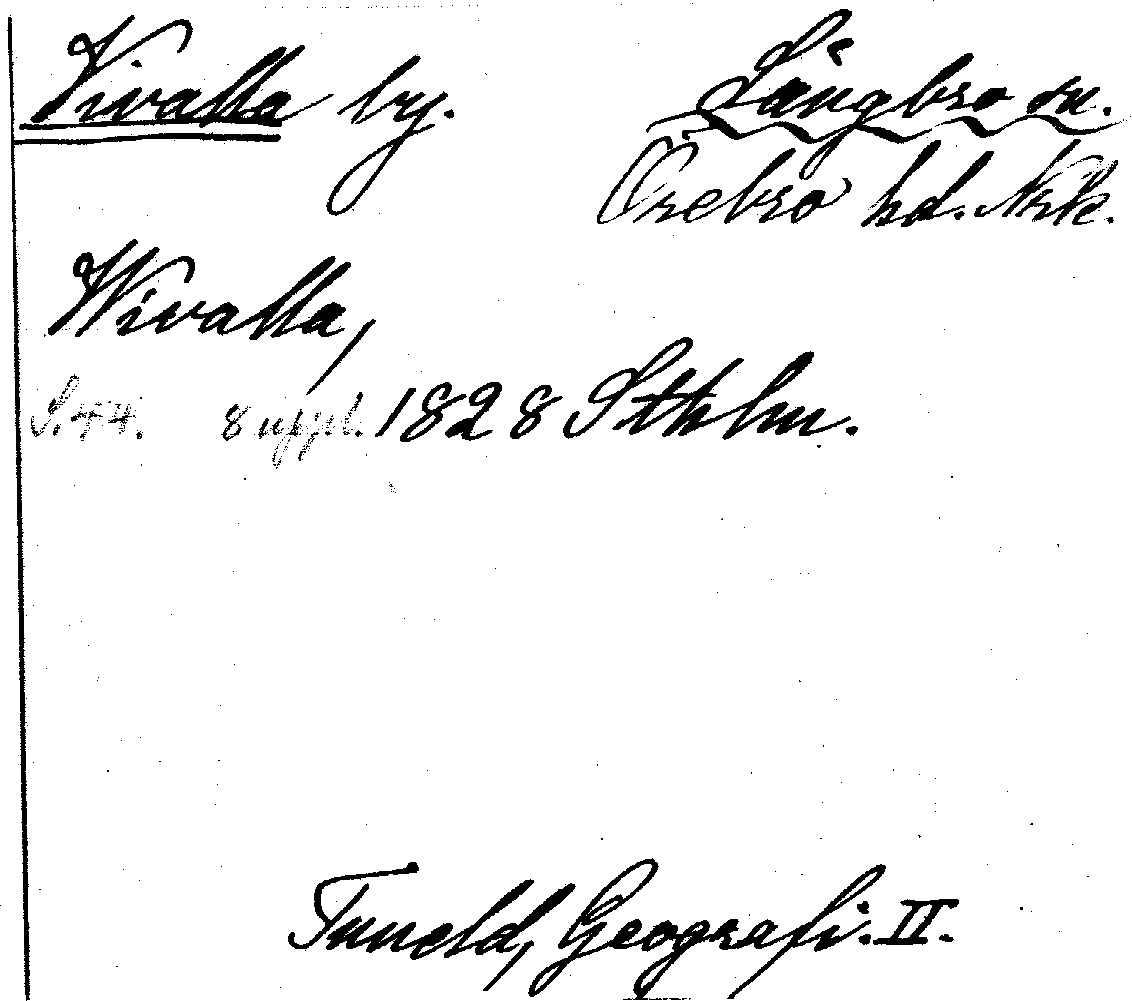 Vivalla by. Längbro sn.
Örebro hd. Nrk.
Wivalla,
S. 44. 8 uppl. 1828 Sthlm.
Tuneld, Geografi. II.